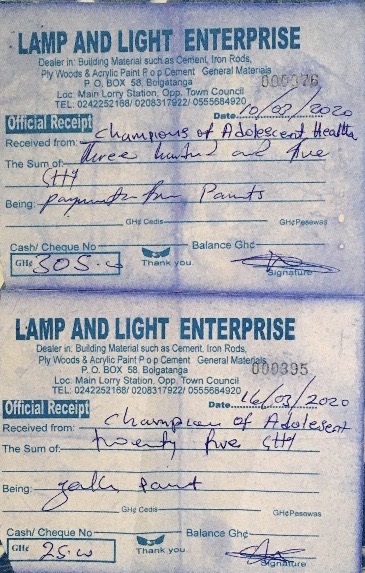 LAMP AND LIGHT ENTERPRISE
Dealer in: Building Material such as Cement, Iron Rods,
Ply Woods & Acrylic Paint P o p Cement General Materials
P. O. BOX 58, Bolgatanga
Loc: Main Lorry Station, Opp. Town Council
TEL: 0242252168/ 0208317922/ 0555684920
Date 10/03/2020
Official Receipt
Received from: Champions of Adolescent Health
The Sum of: three hundred and five
GH¢
Being: payment for Paints
GH¢ Cedis GH¢ Pesewas
Cash/ Cheque No Balance Gh¢
GH¢ 305.00 Thank you. Signature
LAMP AND LIGHT ENTERPRISE
Dealer in: Building Material such as Cement, Iron Rods,
Ply Woods & Acrylic Paint P o p Cement General Materials
P. O. BOX 58, Bolgatanga 000395
Loc: Main Lorry Station, Opp. Town Council
TEL: 0242252168/ 0208317922/ 0555684920
Date 16/03/2020
Official Receipt
Received from: Champion of Adolesent
The Sum of: twenty five GH¢
Being: paint
GH¢ Cedis GH¢ Pesewas
Cash/ Cheque No Balance Gh¢
GH¢ 25.00 Thank you. Signature